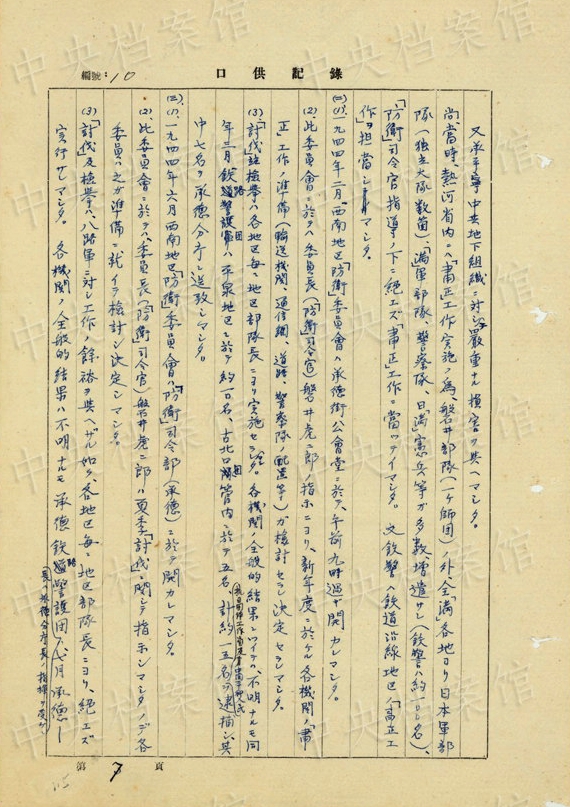 口供記錄
編號：10
又承平寧中共地下組織ニ対シ嚴重ナル損害ヲ與ヘマシタ。
尚、當時、熱河省内ニハ「肅正」工作実施ノ為、岩井部隊（一ケ師団）ノ外、全「満」各地ヨリ日本軍部
隊（独立大隊数箇）、「満」軍部隊、警察隊、日「満」憲兵等ガ多数増遣サレ（鉄警ハ約一〇〇名）、
「防衛」司令官指導ノ下ニ絶エズ「肅正」工作ニ當ッテイマシタ。又鉄警ハ鉄道沿線地区ノ「肅正工
作」ヲ担當シマシタ。
(二)(1)、一九四四年二月、西南地区「防衛」委員會ハ承德街公會堂ニ於テ、午前九時過ヨリ開カレマシタ。
(2)、此委員會ニ於テハ委員長（「防衛」司令官）岩井虎二郎ノ指示ニヨリ、新年度ニ於ケル各機関ノ「肅
正」工作ノ準備（輸送機関、通信網、道路、警察隊ノ配置等）ガ検討セラレ決定セラレマシタ。
(3)「討伐」並檢挙ハ各地区毎ニ地区部隊長ニヨリ実施セラレ、各機関ノ全般的結果ニツイテハ不明ナルモ同
年三月鉄路警護團ハ平泉地区ニ於テ約一〇名、古北口團管内ニ於テ五名、計約一五名ヲ逮捕シ其
中七名ヲ承德分庁ニ送致シマシタ。
(三)(1)、一九四四年六月西南地区「防衛」委員會ハ「防衛」司令部（承德）ニ於テ開カレマシタ。
(2)、此委員會ニ於テハ、委員長（「防衛」司令官）岩井虎二郎ハ夏季「討伐」ニ関シテ指示シマシタノデ各
委員ハ之ガ準備ニ就イテ検討シ決定シマシタ。
(3)「討伐」及檢挙ハ、八路軍ニ対シ工作ノ餘裕ヲ與ヘザル如ク、各地区毎ニ地区部隊長ニヨリ、絶エズ
実行サレマシタ。各機関ノ全般的結果ハ不明ナルモ承德鉄路警護団ハ七月承德―
第7頁